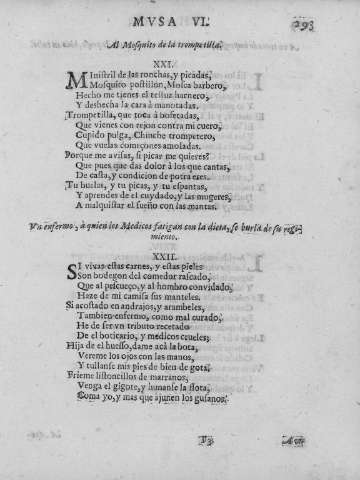 MVSA VI.
293
Al Mosquito de la trompetilla.
XXI.
MInistril de las ronchas, y picadas,
Mosquito postillon, Mosca barbero,
Hecho me tienes el testuz harnero,
Y deshecha la cara à manotadas.
Trompetilla, que toca à bofetadas,
Que vienes con rejon contra mi cuero,
Cupido pulga, Chinche trompetero,
Que vuelas começones amoladas.
Porque me auisas, si picar me quieres?
Que pues que das dolor à los que cantas,
De casta, y condicion de potra eres.
Tu buelas, y tu picas, y tu espantas,
Y aprendes de el cuydado, y las mugeres,
A malquistar el sueño con las mantas.
Vn enfermo, à quien los Medicos fatigan con la dieta, se burla de su regi-
miento.
XXII.
SI viuas estas carnes, y estas pieles
Son bodegon del comedor rascado,
Que al pescueço, y al hombro convidado,
Haze de mi camisa sus manteles.
Si acostado en andrajos, y arambeles,
Tambien enfermo, como mal curado,
He de ser vn tributo recetado
De el boticario, y medicos crueles;
Hija de el huesso, dame acà la bota,
Vereme los ojos con las manos,
Y tullanse mis pies de bien de gota;
Frieme listoncillos de marranos,
Venga el gigote, y lleuanse la flota,
Coma yo, y mas que ajunen los gusanos.